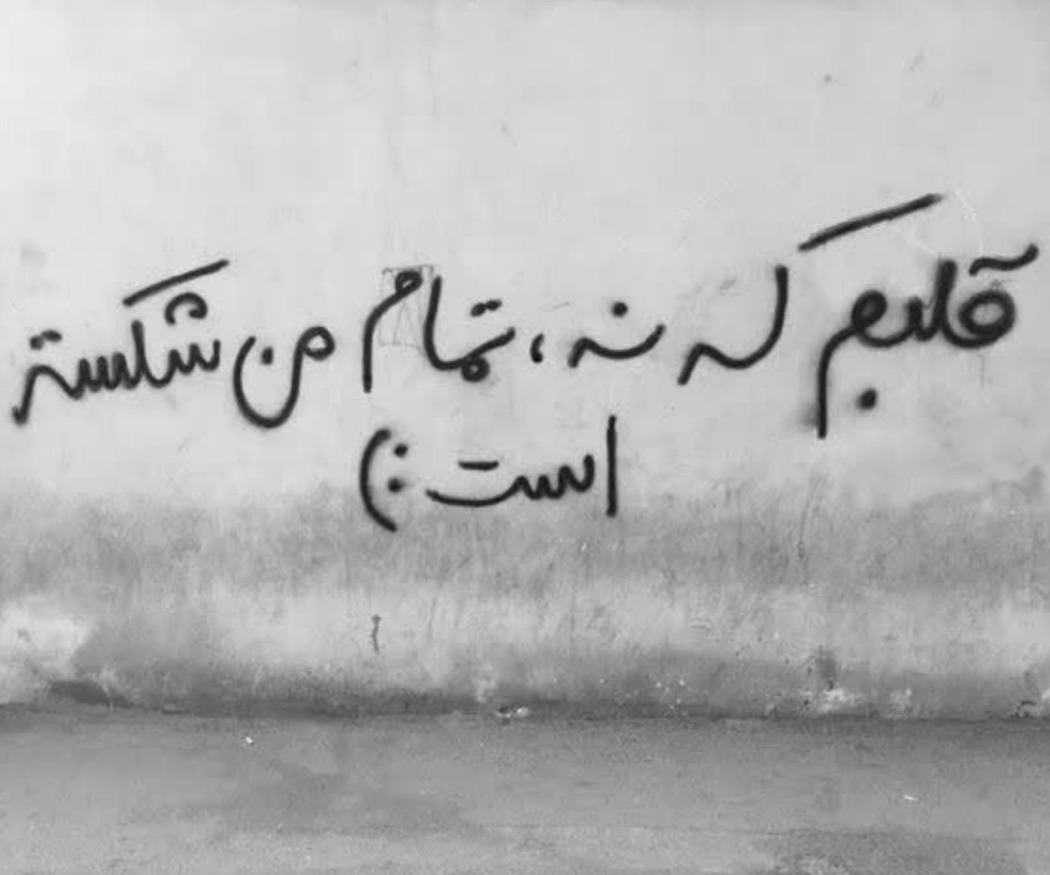 قلبم که نه، تمام من شکسته
است :)